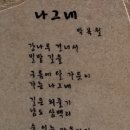 나그네
박목월
강나루 건너서
밀밭 길을
구름에 달 가듯이
가는 나그네
길은 외줄기
남도 삼백리